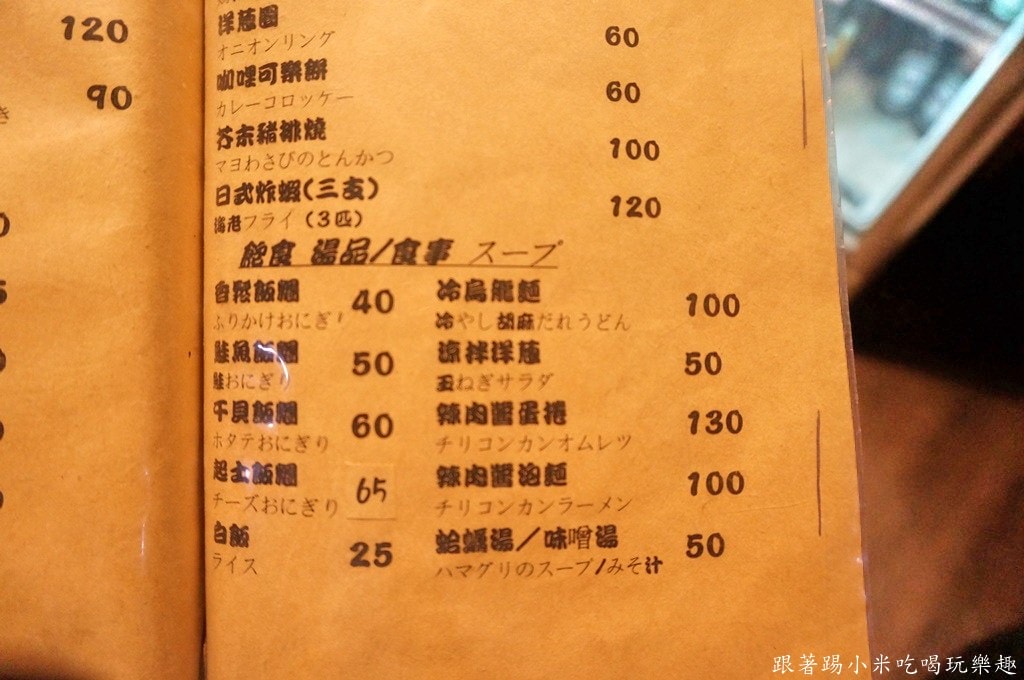 120
90
き
洋蔥圈
オニオンリング
60
咖哩可樂餅
カレーコロッケー
60
芥末豬排燒
マヨわさびのとんかつ
100
日式炸蝦(三支)
海老フライ(3匹)
120
飽食 湯品/食事 スープ
香鬆飯糰
ふりかけおにぎり
40
鮭魚飯糰
鮭おにぎり
50
干貝飯糰
ホタテおにぎり
60
起士飯糰
チーズおにぎり
65
白飯
ライス
25
冷烏龍麵
冷やし胡麻だれうどん
100
涼拌洋蔥
玉ねぎサラダ
50
辣肉醬蛋捲
チリコンカンオムレツ
130
辣肉醬泡麵
チリコンカンラーメン
100
蛤蠣湯/味噌湯
ハマグリのスープ/みそ汁
50
跟著踢小米吃喝玩樂趣